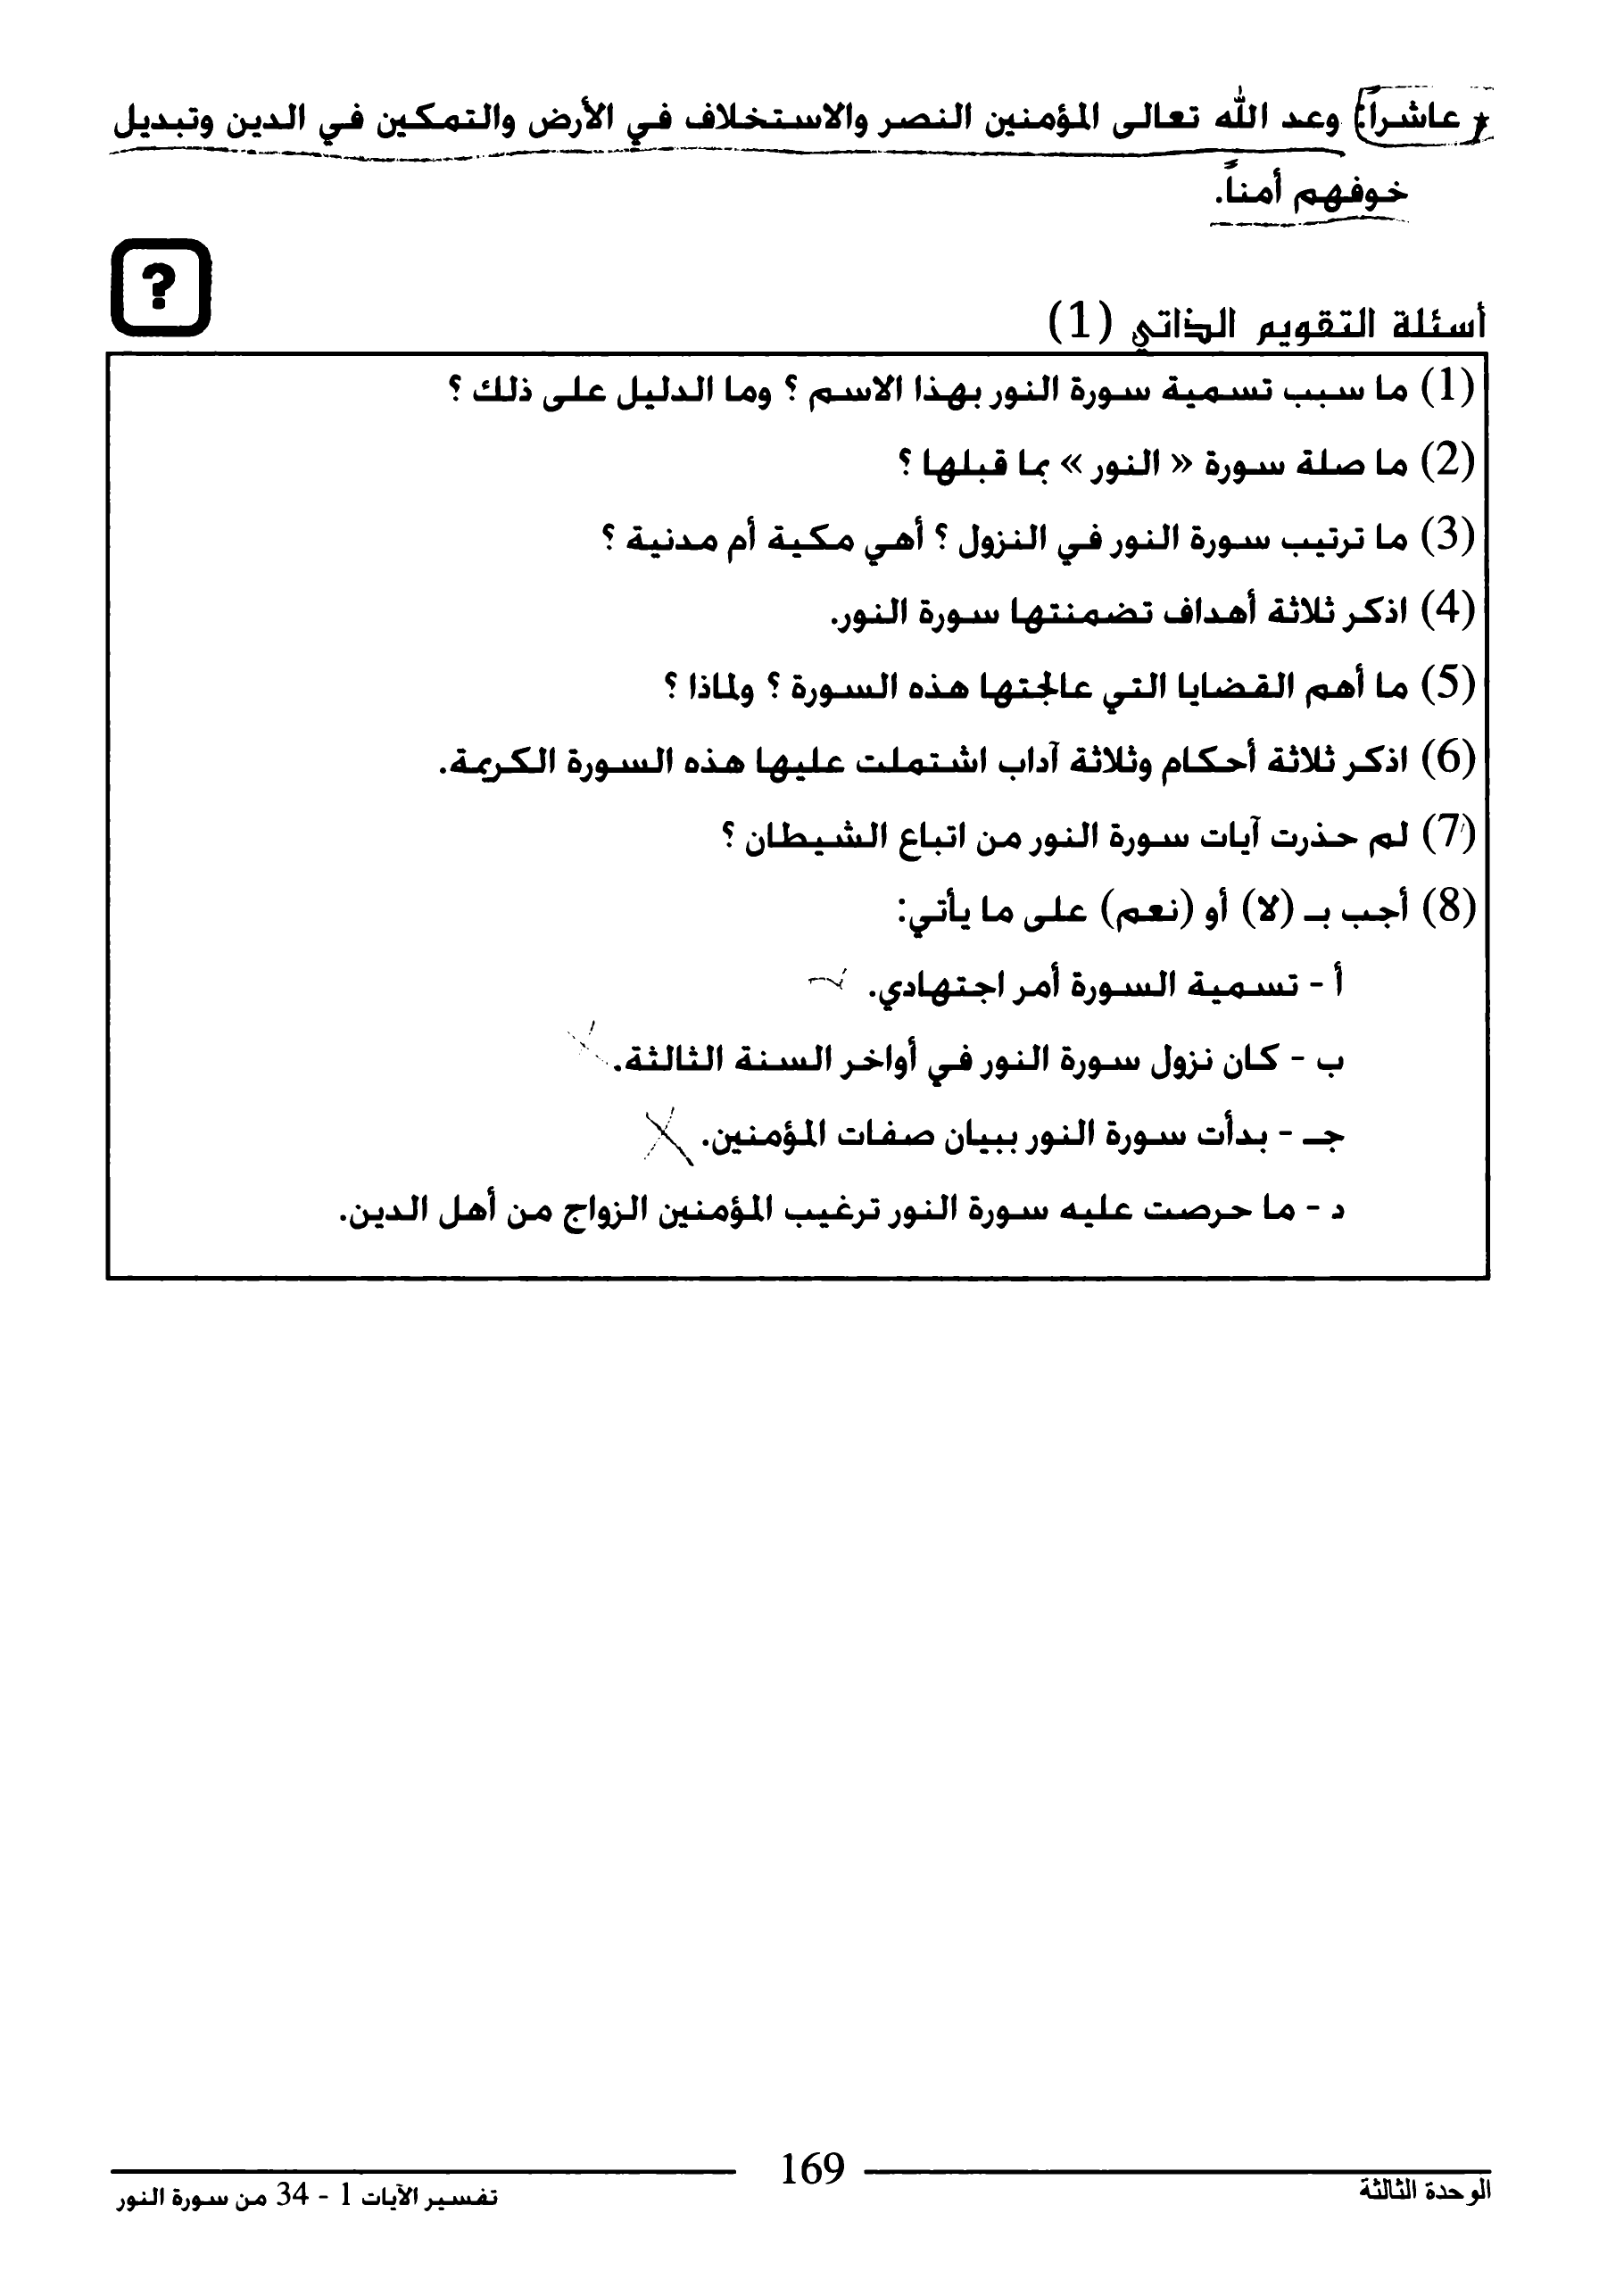 * عاشراً: وعد الله تعالى المؤمنين النصر والاستخلاف في الأرض والتمكين في الدين وتبديل
خوفهم أمناً.
?
أسئلة التقويم الذاتي (1)
(1) ما سبب تسمية سورة النور بهذا الاسم ؟ وما الدليل على ذلك ؟
(2) ما صلة سورة « النور » بما قبلها ؟
(3) ما ترتيب سورة النور في النزول ؟ أهي مكية أم مدنية ؟
(4) اذكر ثلاثة أهداف تضمنتها سورة النور.
(5) ما أهم القضايا التي عالجتها هذه السورة ؟ ولماذا ؟
(6) اذكر ثلاثة أحكام وثلاثة آداب اشتملت عليها هذه السورة الكريمة.
(7) لم حذرت آيات سورة النور من اتباع الشيطان ؟
(8) أجب بـ (لا) أو (نعم) على ما يأتي:
أ - تسمية السورة أمر اجتهادي.
ب - كان نزول سورة النور في أواخر السنة الثالثة.
جـ - بدأت سورة النور ببيان صفات المؤمنين.
د - ما حرصت عليه سورة النور ترغيب المؤمنين الزواج من أهل الدين.
الوحدة الثالثة
169
تفسير الآيات 1 - 34 من سورة النور